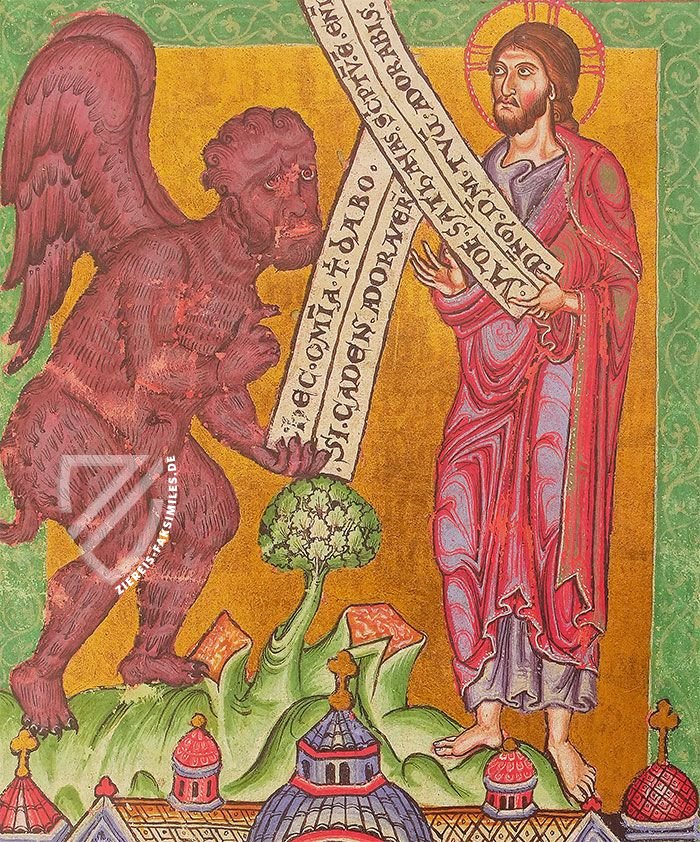 hEC·OM̄IA·T̄·DABO.
SI·CADEN·ADORAVER·
VATOE·SATHANAS, SC̄PTV̄·Ē·ENĪ
DN̄Q·DM̄·TVŪ·ADORABIS.
ZIEREIS-FAKSIMILES.DE